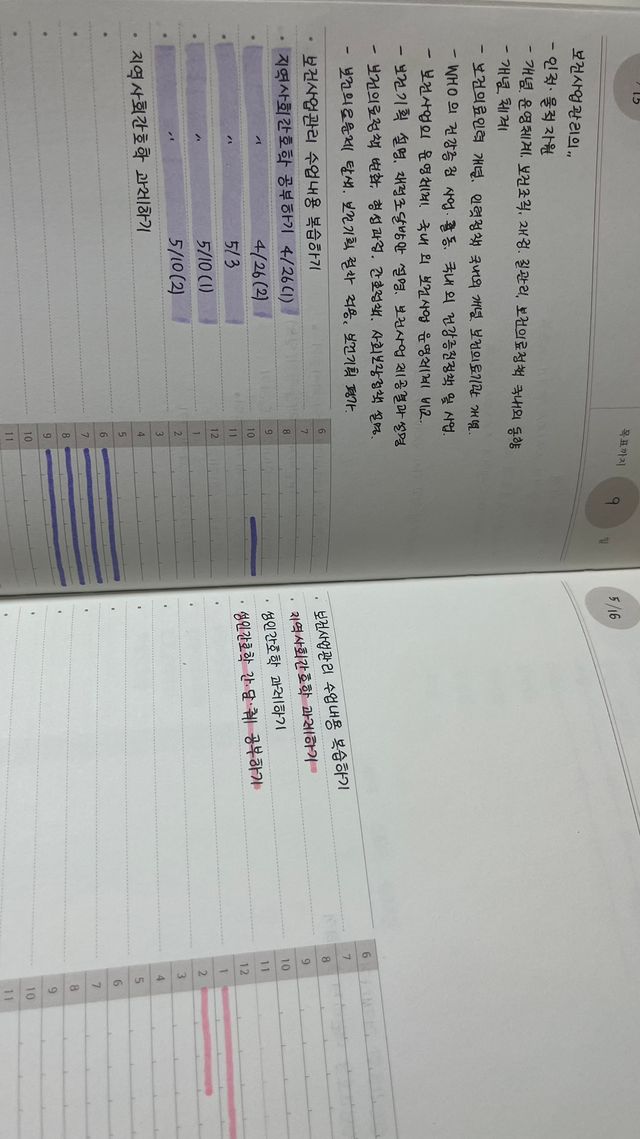 /15
목표까지
9
일
보건사업관리의,,
- 인적·물적자원
- 개념, 운영체계, 보건조직, 재정, 질관리, 보건의료정책 국내외 동향
- 개념, 체계
- 보건의료인력 개념, 인력정책 국내외 개념, 보건의료기관 개념.
- WHO의 건강증진 사업·활동 국내외 건강증진정책 및 사업.
- 보건사업의 운영체계, 국내외 보건사업 운영체계 비교.
- 보건기획 설명, 재원조달방안 설명, 보건사업 제공결과 설명
- 보건의료정책 변화, 형성과정, 간호정책, 사회보장정책 설명.
- 보건의료문제 탐색, 보건기획 절차 적용, 보건기획 평가
• 보건사업관리 수업내용 복습하기
• 지역사회간호학 공부하기 4/26(1)
• " 4/26(2)
• " 5/3
• " 5/10(1)
• " 5/10(2)
• 지역사회간호학 과제하기
6
7
8
9
10
11
12
1
2
3
4
5
6
7
8
9
10
11
5/16
• 보건사업관리 수업내용 복습하기
• 지역사회간호학 과제하기
• 성인간호학 과제하기
• 성인간호학 간·담·췌 공부하기
6
7
8
9
10
11
12
1
2
3
4
5
6
7
8
9
10
11